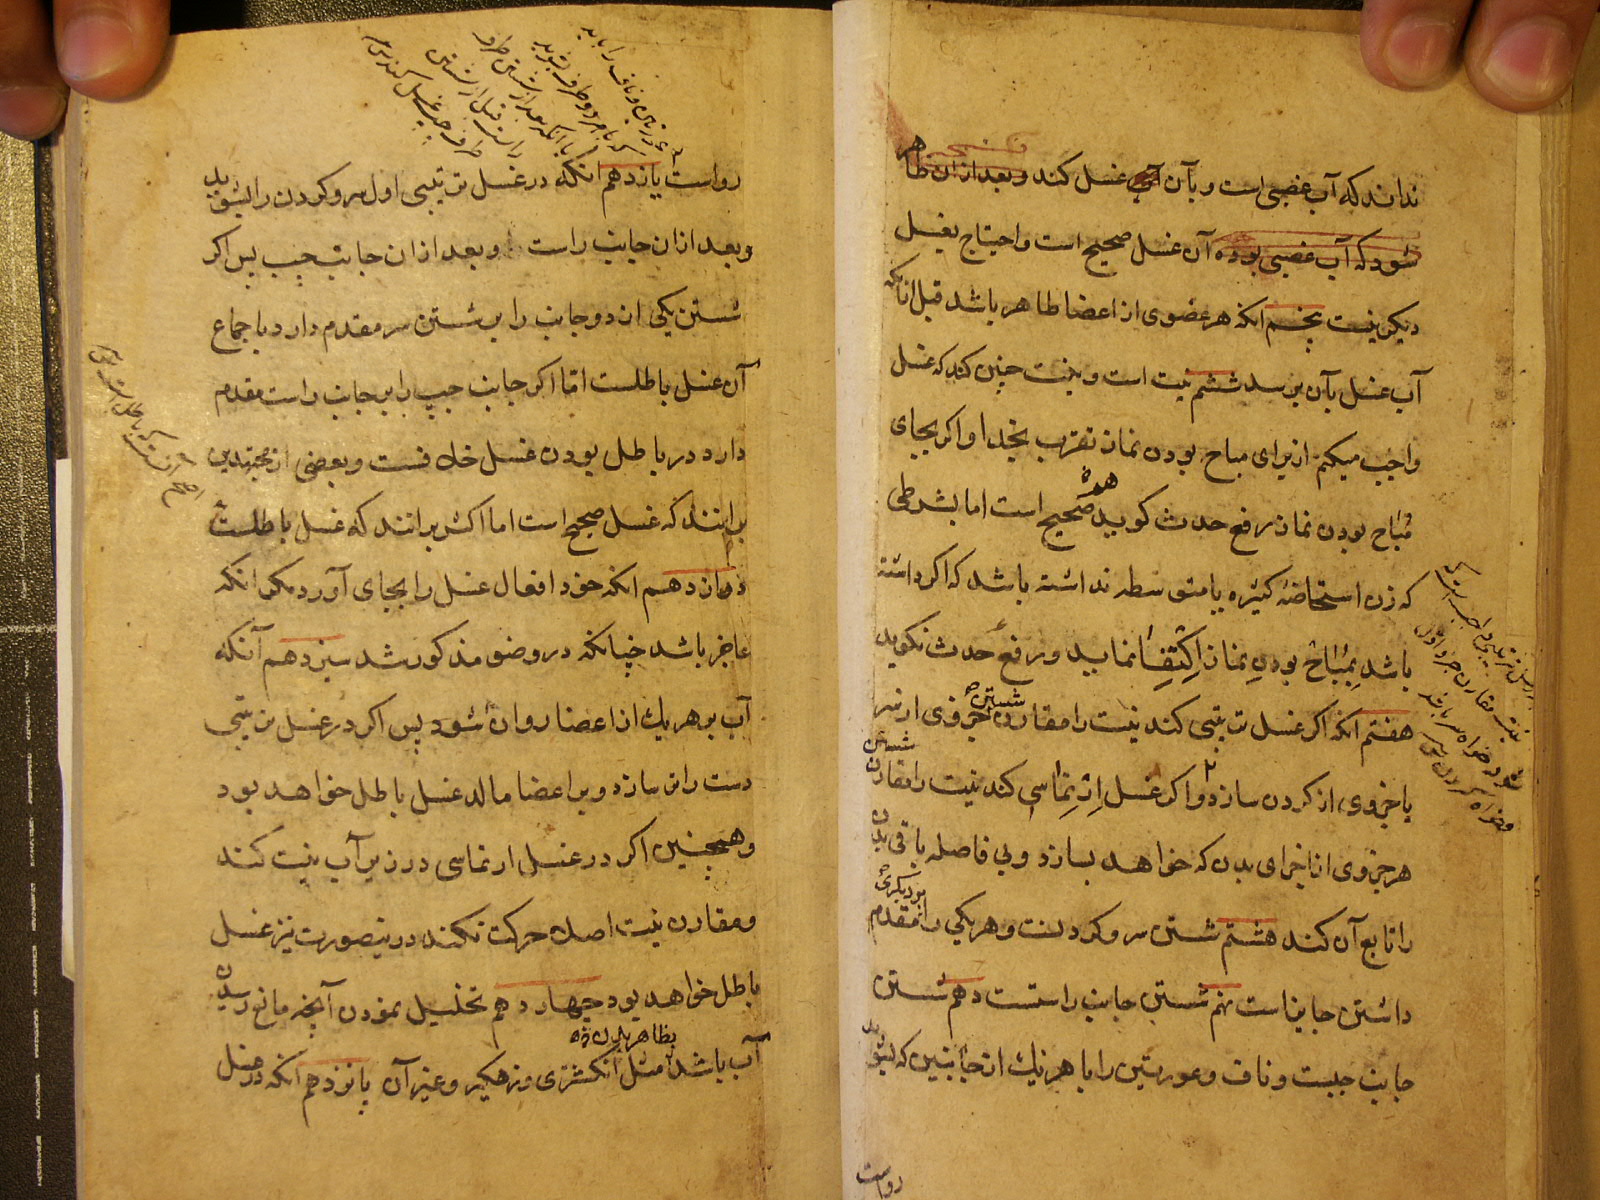 نداند که آب غصبی است و بآن آب غسل کند و بعد ازان ظاهر
شود که آب غصبی بوده آن غسل صحیح است و احتیاج بغسل
دیکر نیست پنجم آنکه هر عضوی از اعضا طاهر باشد قبل ازانکه
آب غسل بآن برسد ششم نیت است و نیت چنین کند که غسل
واجب میکنم از برای مباح بودن نماز تقرب بخدا و اکر بجای
مباح بودن نماز رفع حدث کوید صحیح است اما بشرطی
که زن استحاضهٔ کثیره یا متوسطه نداشته باشد که اکر داشته
باشد بمباح بودن نماز اکتفا نماید و رفع حدث نکوید
هفتم آنکه اکر غسل ترتیبی کند نیت را مقارن شستن جزوی از سر
یا جزوی از کردن سازد و اکر غسل ارتماسی کند نیت را مقارن شستن
هر جزوی از اجزای بدن که خواهد بسازد و بی فاصله باقی بدن
را تابع آن کند هشتم شستن سر و کردنست و هر یکی را بر دیکری مقدم
داشتن جایز است نهم شستن جانب راستست دهم شستن
جانب چپست و ناف و عورتین را با هر یک از جانبین که بشوید
رواست
رواست یازدهم آنکه در غسل ترتیبی اول سر و کردن را بشوید
و بعد ازان جانب راست و بعد ازان جانب چپ پس اکر
شستن یکی ازدو جانب را بر شستن سر مقدم دارد باجماع
آن غسل باطلست اما اکر جانب چپ را بر جانب راست مقدم
دارد در باطل بودن غسل خلافست و بعضی از مجتهدین
برانند که غسل صحیح است اما اکثر برانند که غسل باطلست
دوازدهم آنکه خود افعال غسل را بجای آورد مکر آنکه
عاجز باشد چنانکه در وضو مذکور شد سیزدهم آنکه
آب بر هر یک از اعضا روان شود پس اکر در غسل ترتیبی
دست را تر سازد و بر اعضا مالد غسل باطل خواهد بود
و همچنین اکر در غسل ارتماسی در زیر آب نیت کند
و مقارن نیت اصلا حرکت نکند درینصورت نیز غسل
باطل خواهد بود چهاردهم تخلیل نمودن آنچه مانع رسیدن
آب باشد بظاهر بدن مثل انکشتری و زهکیر و غیر آن پانزدهم آنکه در غسل